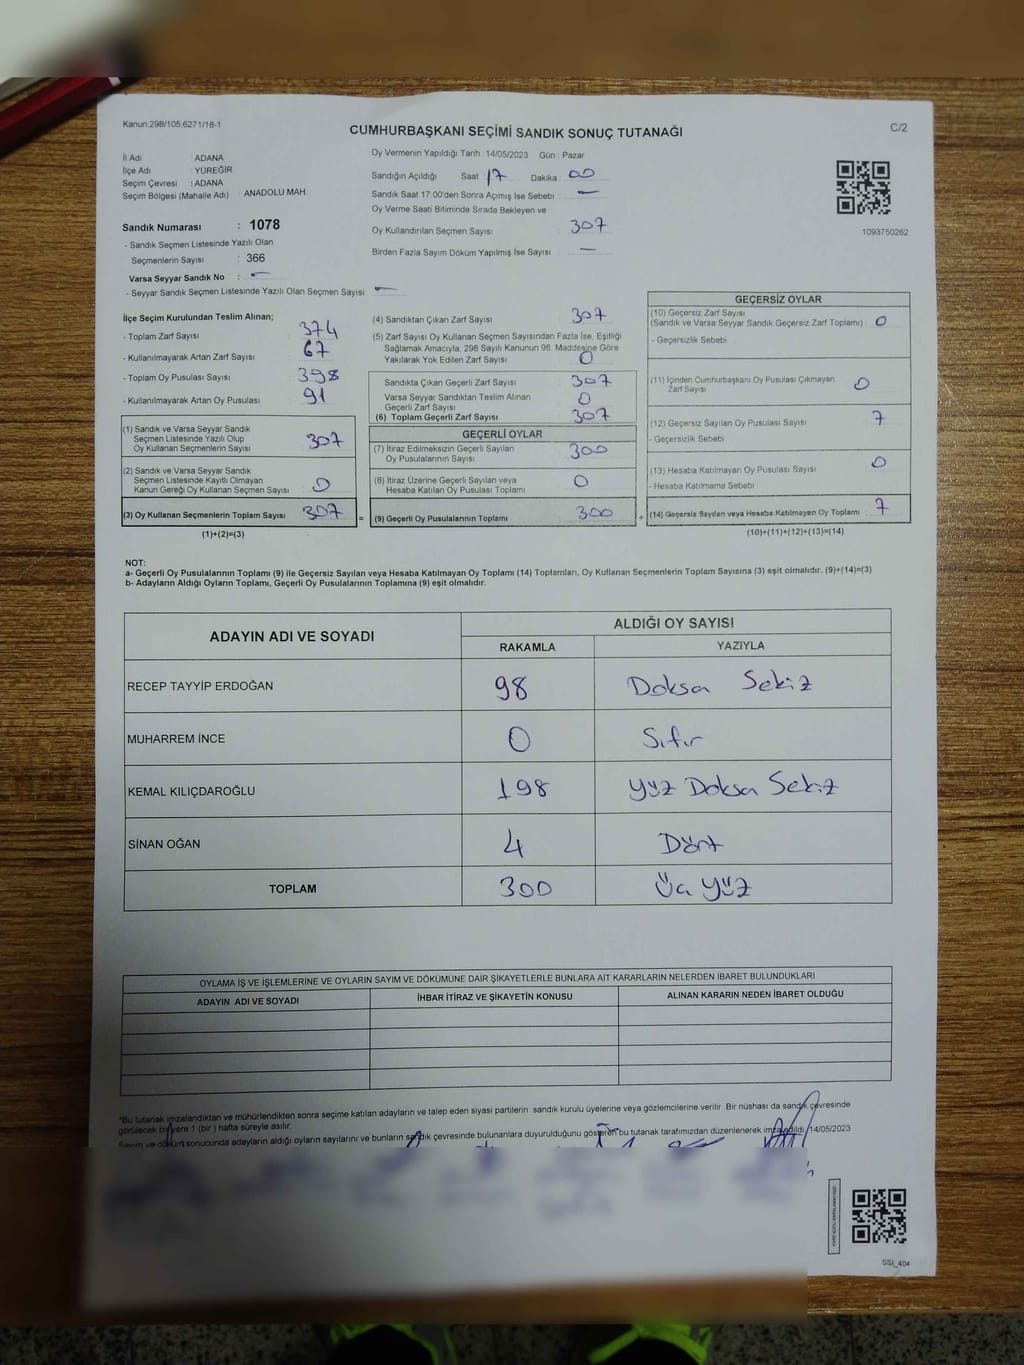 Kanun:298/105,6271/18-1
CUMHURBAŞKANI SEÇİMİ SANDIK SONUÇ TUTANAĞI
C/2
İl Adı : ADANA
İlçe Adı : YÜREĞİR
Seçim Çevresi : ADANA
Seçim Bölgesi (Mahalle Adı) ANADOLU MAH.
Oy Vermenin Yapıldığı Tarih :14/05/2023 Gün : Pazar
Sandığın Açıldığı Saat : 17 Dakika : 00
Sandık Saat 17.00'den Sonra Açımış İse Sebebi : —
Oy Verme Saati Bitiminde Sırada Bekleyen ve
Oy Kullandırılan Seçmen Sayısı : 307
Birden Fazla Sayım Döküm Yapılmış İse Sayısı : —
1093750262
Sandık Numarası : 1078
- Sandık Seçmen Listesinde Yazılı Olan
Seçmenlerin Sayısı : 366
Varsa Seyyar Sandık No : —
- Seyyar Sandık Seçmen Listesinde Yazılı Olan Seçmen Sayısı: —
İlçe Seçim Kurulundan Teslim Alınan;
- Toplam Zarf Sayısı : 374
- Kullanılmayarak Artan Zarf Sayısı : 67
- Toplam Oy Pusulası Sayısı : 398
- Kullanılmayarak Artan Oy Pusulası : 91
(1) Sandık ve Varsa Seyyar Sandık
Seçmen Listesinde Yazılı Olup
Oy Kullanan Seçmenlerin Sayısı : 307
(2) Sandık ve Varsa Seyyar Sandık
Seçmen Listesinde Kayıtlı Olmayan
Kanun Gereği Oy Kullanan Seçmen Sayısı : 0
(3) Oy Kullanan Seçmenlerin Toplam Sayısı : 307
(1)+(2)=(3)
(4) Sandıktan Çıkan Zarf Sayısı : 307
(5) Zarf Sayısı Oy Kullanan Seçmen Sayısından Fazla İse, Eşitliği
Sağlamak Amacıyla, 298 Sayılı Kanunun 98. Maddesine Göre
Yakılarak Yok Edilen Zarf Sayısı : 0
Sandıkta Çıkan Geçerli Zarf Sayısı : 307
Varsa Seyyar Sandıktan Teslim Alınan
Geçerli Zarf Sayısı : 0
(6) Toplam Geçerli Zarf Sayısı : 307
GEÇERLİ OYLAR
(7) İtiraz Edilmeksizin Geçerli Sayılan
Oy Pusulalarının Sayısı : 300
(8) İtiraz Üzerine Geçerli Sayılan veya
Hesaba Katılan Oy Pusulası Toplamı : 0
= (9) Geçerli Oy Pusulalarının Toplamı : 300
GEÇERSİZ OYLAR
(10) Geçersiz Zarf Sayısı
(Sandık ve Varsa Seyyar Sandık Geçersiz Zarf Toplamı) : 0
- Geçersizlik Sebebi :
(11) İçinden Cumhurbaşkanı Oy Pusulası Çıkmayan
Zarf Sayısı : 0
(12) Geçersiz Sayılan Oy Pusulası Sayısı : 7
- Geçersizlik Sebebi :
(13) Hesaba Katılmayan Oy Pusulası Sayısı : 0
- Hesaba Katılmama Sebebi :
+ (14) Geçersiz Sayılan veya Hesaba Katılmayan Oy Toplamı : 7
(10)+(11)+(12)+(13)=(14)
NOT:
a- Geçerli Oy Pusulalarının Toplamı (9) ile Geçersiz Sayılan veya Hesaba Katılmayan Oy Toplamı (14) Toplamları, Oy Kullanan Seçmenlerin Toplam Sayısına (3) eşit olmalıdır. (9)+(14)=(3)
b- Adayların Aldığı Oyların Toplamı, Geçerli Oy Pusulalarının Toplamına (9) eşit olmalıdır.
ADAYIN ADI VE SOYADI ALDIĞI OY SAYISI
RAKAMLA YAZIYLA
RECEP TAYYİP ERDOĞAN 98 Doksa Sekiz
MUHARREM İNCE 0 Sıfır
KEMAL KILIÇDAROĞLU 198 Yüz Doksa Sekiz
SİNAN OĞAN 4 Dört
TOPLAM 300 Üç Yüz
OYLAMA İŞ VE İŞLEMLERİNE VE OYLARIN SAYIM VE DÖKÜMÜNE DAİR ŞİKAYETLERLE BUNLARA AİT KARARLARIN NELERDEN İBARET BULUNDUKLARI
ADAYIN ADI VE SOYADI İHBAR İTİRAZ VE ŞİKAYETİN KONUSU ALINAN KARARIN NEDEN İBARET OLDUĞU
*Bu tutanak imzalandıktan ve mühürlendikten sonra seçime katılan adayların ve talep eden siyasi partilerin sandık kurulu üyelerine veya gözlemcilerine verilir. Bir nüshası da sandık çevresinde
görülecek bir yere 1 (bir ) hafta süreyle asılır.
Sayım ve döküm sonucunda adayların aldığı oyların sayılarını ve bunların sandık çevresinde bulunanlara duyurulduğunu gösteren bu tutanak tarafımızdan düzenlenerek imzaedildi. 14/05/2023
SSI_404